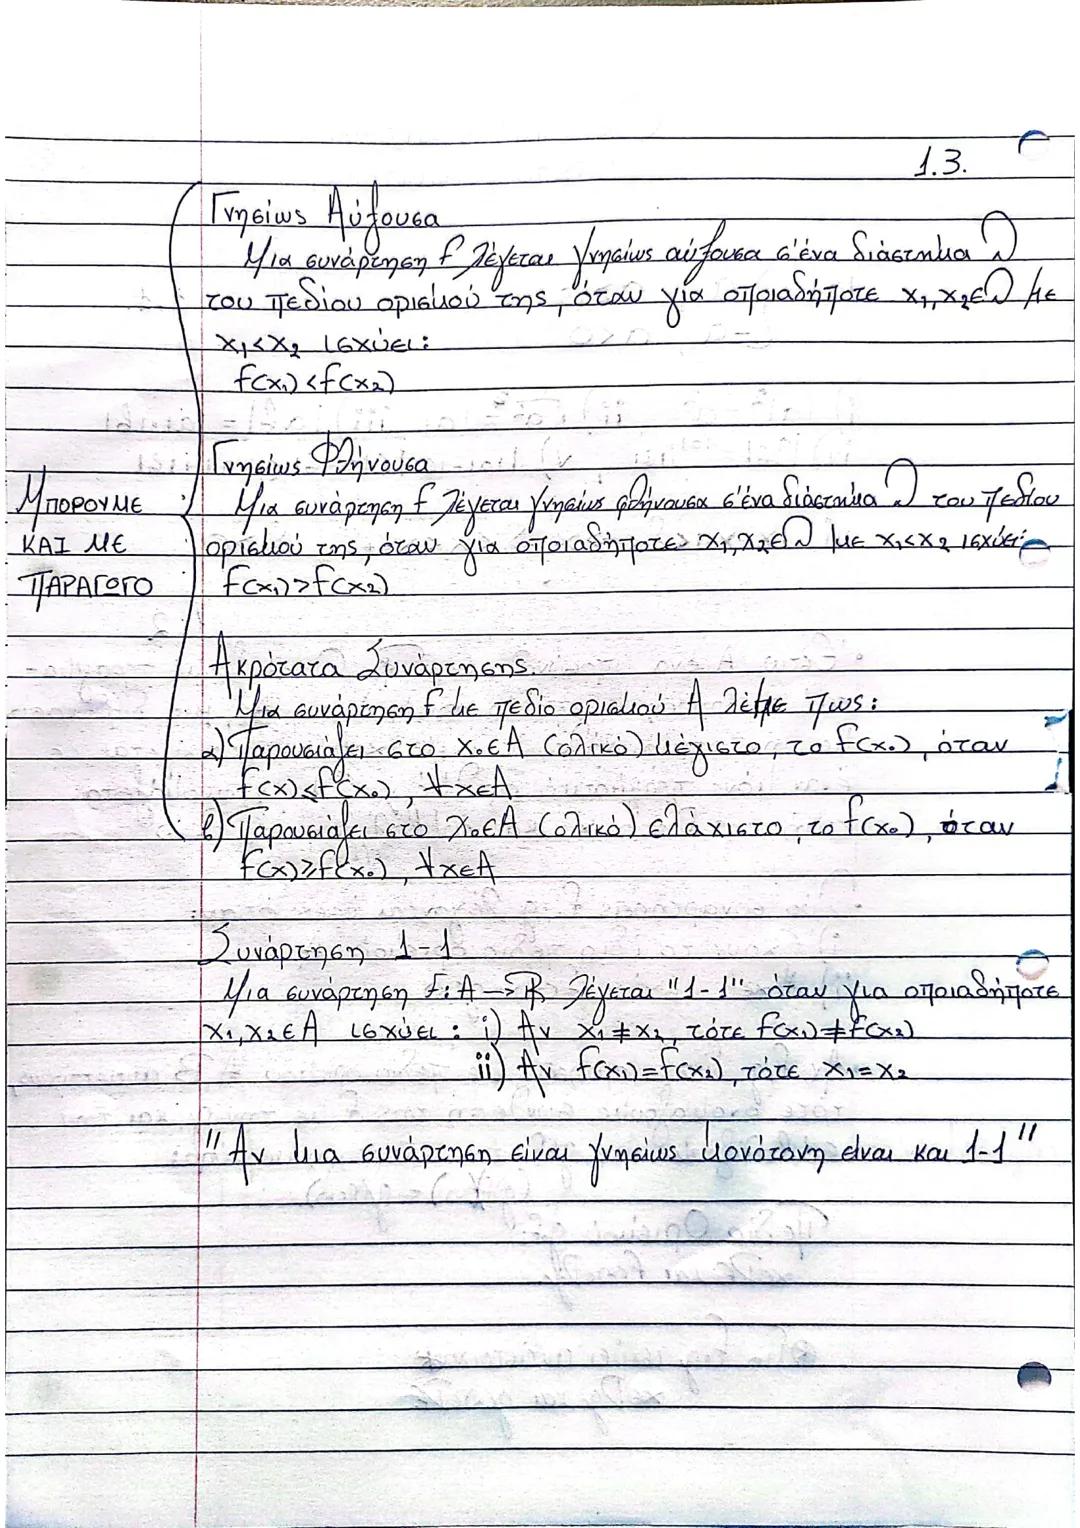 1.3.
Γνησίως Αύξουσα
Μια συνάρτηση f λέγεται γνησίως αύξουσα σ'ένα διάστημα Δ
του πεδίου ορισμού της, όταν για οποιαδήποτε x₁,x₂∈Δ με
x₁<x₂ ισχύει:
f(x₁)<f(x₂)
Γνησίως Φθήνουσα
Μια συνάρτηση f λέγεται γνησίως φθήνουσα σ'ένα διάστημα Δ του πεδίου
ορισμού της, όταν για οποιαδήποτε x₁,x₂∈Δ με x₁<x₂ ισχύει:
f(x₁)>f(x₂)
ΜΠΟΡΟΥΜΕ
ΚΑΙ ΜΕ
ΠΑΡΑΓΟΓΟ
Ακρότατα Συνάρτησης.
Μια συνάρτηση f με πεδίο ορισμού Α λέμε πως:
α) Παρουσιάζει στο x₀∈A (ολικό) μέγιστο, το f(x₀), όταν
f(x)≤f(x₀), ∀x∈A
β) Παρουσιάζει στο x₀∈A (ολικό) ελάχιστο, το f(x₀), όταν
f(x)≥f(x₀), ∀x∈A
Συνάρτηση 1-1
Μια συνάρτηση f:A→ℝ λέγεται "1-1" όταν για οποιαδήποτε
x₁,x₂∈A ισχύει: i) Αν x₁≠x₂, τότε f(x₁)≠f(x₂)
ii) Αν f(x₁)=f(x₂), τότε x₁=x₂
"Αν μια συνάρτηση είναι γνησίως μονότονη είναι και 1-1"